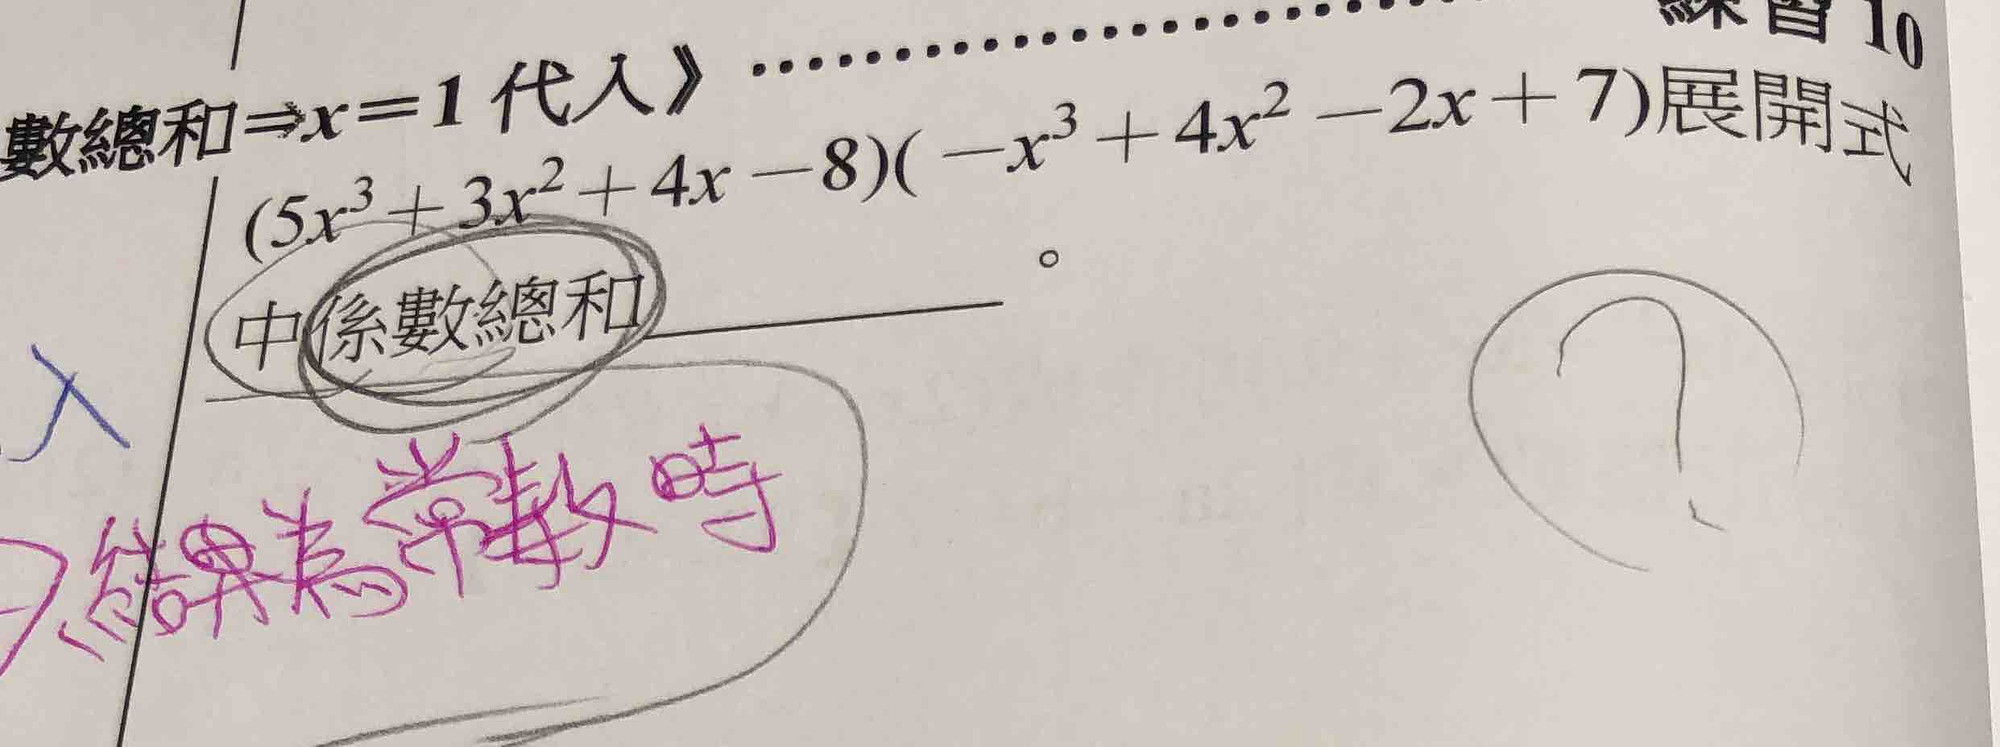 練習 10
數總和⇒x=1 代入》
(5x³+3x²+4x-8)(-x³+4x²-2x+7)展開式
中係數總和 。
入
結果為常數時
?